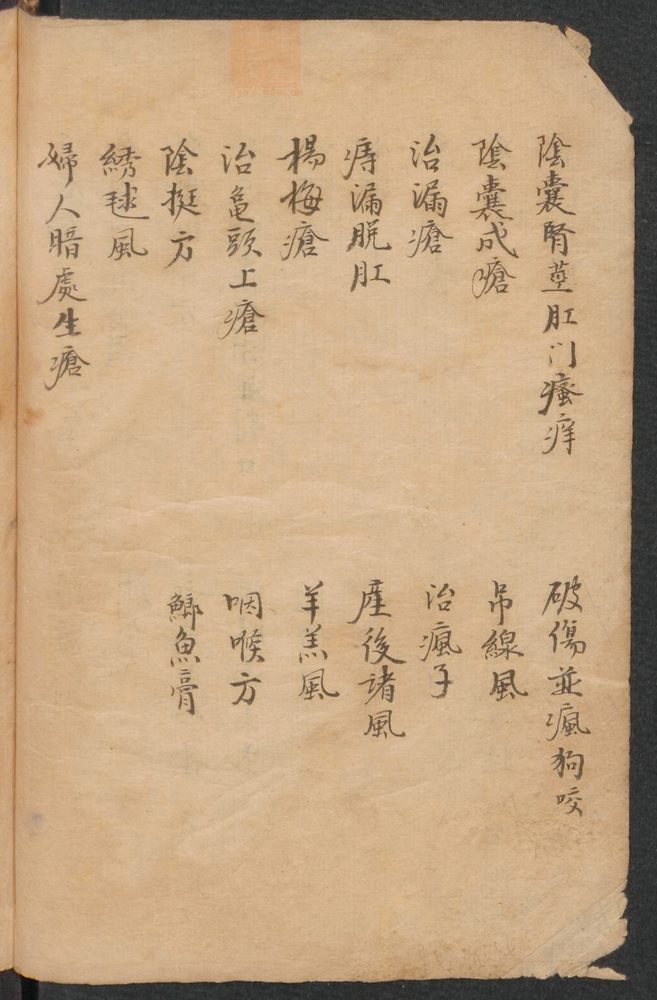 陰囊腎莖肛门瘙痒
陰囊成瘡
治漏瘡
痔漏脱肛
楊梅瘡
治龟頭上瘡
陰挺方
綉毬風
婦人暗處生瘡
破傷並瘋狗咬
吊線風
治瘋子
産後諸風
羊羔風
咽喉方
鯽魚膏